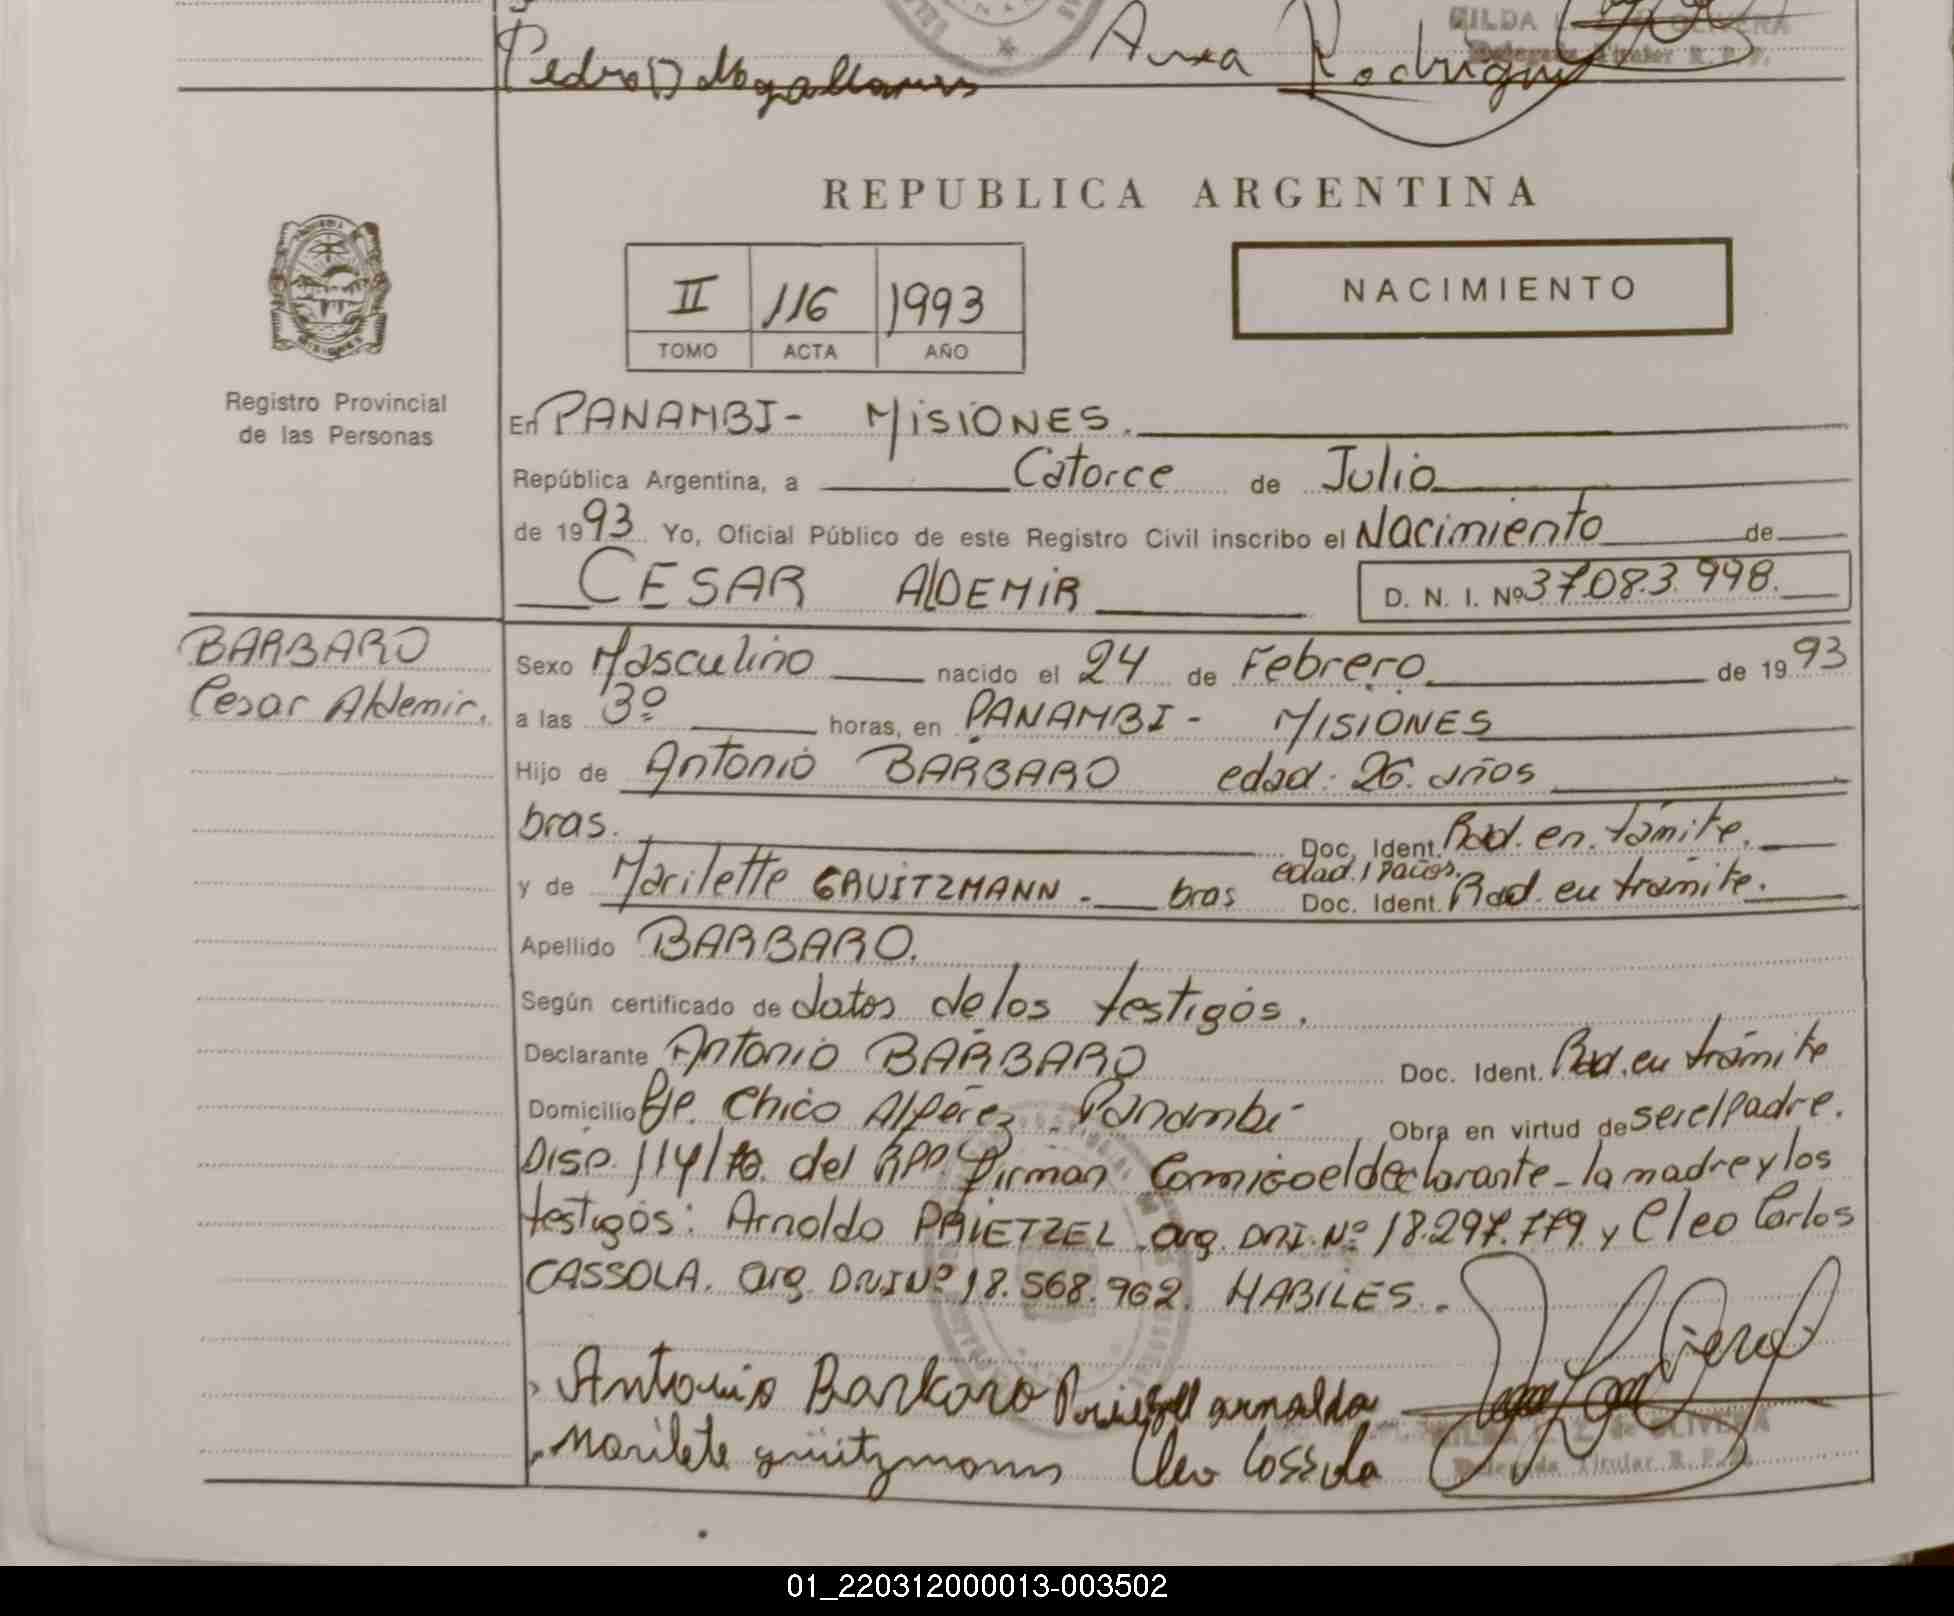 GILDA L. Z. de OLIVERA
Delegada Titular R. P. P.
Pedro D Magallanes
Rodriguez
REPUBLICA ARGENTINA
II 116 1993
TOMO ACTA AÑO
NACIMIENTO
Registro Provincial
de las Personas
En PANAMBI - MISIONES.
República Argentina, a Catorce de Julio
de 1993 Yo, Oficial Público de este Registro Civil inscribo el Nacimiento de
CESAR ALDEMIR D. N. I. Nº 37.083.998.
BARBARO
Cesar Aldemir.
Sexo Masculino nacido el 24 de Febrero de 1993
a las 3º horas, en PANAMBI - MISIONES
Hijo de Antonio BARBARO edad. 26. años
bras. Doc. Ident. Rad. en. támite.
edad. 19 años.
y de Marilette GRUITZMANN - bras Doc. Ident. Rad. en tramite.
Apellido BARBARO.
Según certificado de datos de los testigos.
Declarante Antonio BARBARO Doc. Ident. Rad. en trámite
Domicilio Pje. Chico Alférez - Panambí Obra en virtud de ser el Padre.
Disp. 114/70. del RPP. Firman Conmigo el declarante - la madre y los
testigos: Arnoldo PRIETZEL arg. DNI. Nº 18.297.779 y Cleo Carlos
CASSOLA. arg. DNI Nº 18.568.962. HABILES.-
Antonio Barbaro Prietzel arnaldo
Marilete grüitzmann Cleo Cossola
GILDA L. Z. de OLIVERA
Delegada Titular R. P. P.
01_220312000013-003502